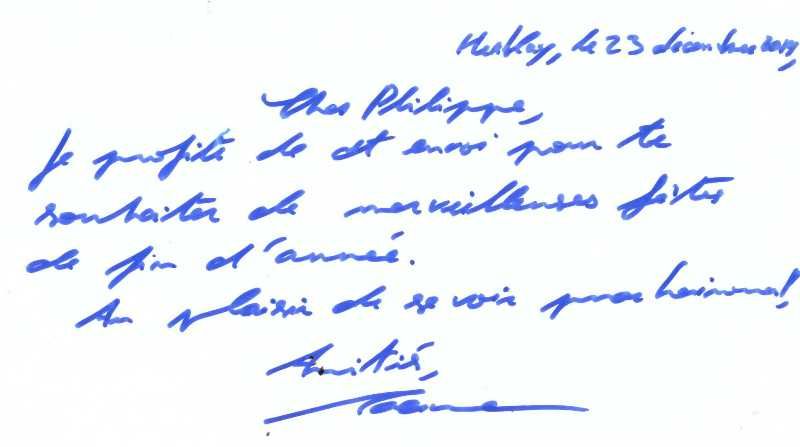 Herblay, le 23 décembre 2019,
Cher Philippe,
Je profite de cet envoi pour te
souhaiter de merveilleuses fêtes
de fin d'année.
Au plaisir de se voir prochainement!
Amitiés,